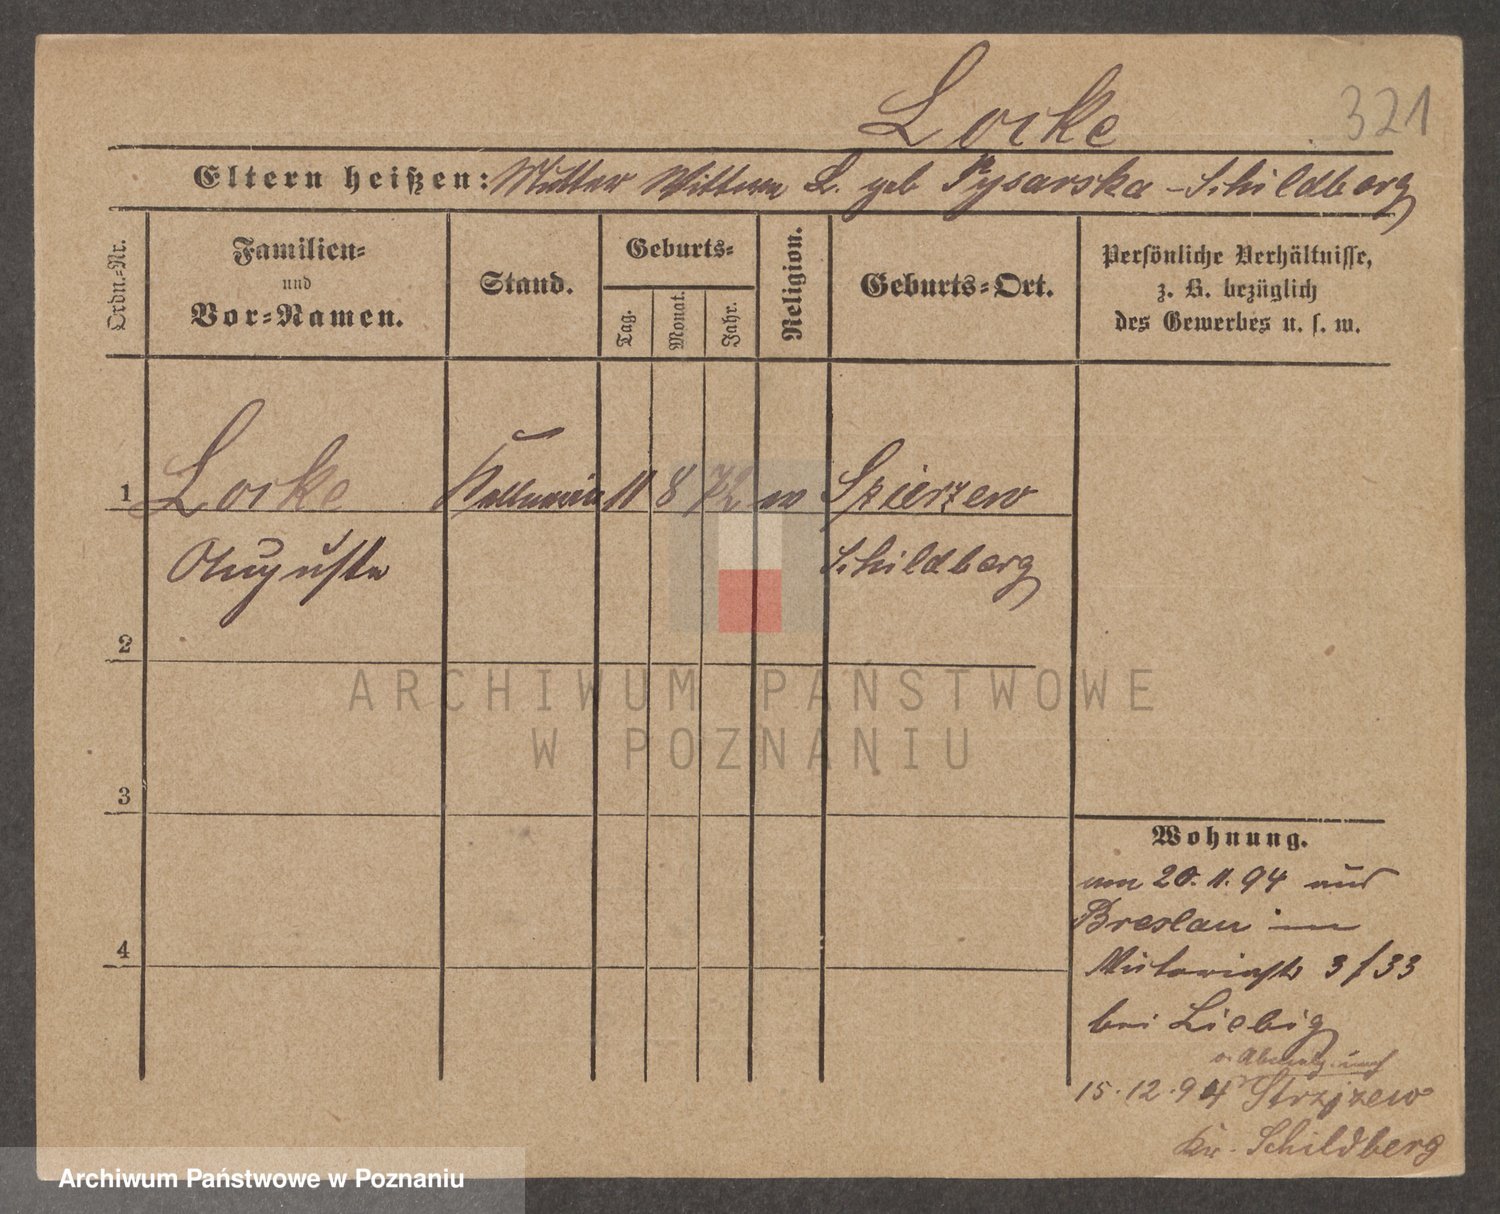 Locke
321
Eltern heißen: Mutter Wittwe L. geb Pysarska - Schildberg
Ordn.-Nr.
Familien-
und
Vor-Namen.
Stand.
Geburts-
Tag.
Monat.
Jahr.
Religion.
Geburts-Ort.
Persönliche Verhältnisse,
z. B. bezüglich
des Gewerbes u. s. w.
1 Locke Kellnerin 11 8 72 Spierzew
Auguste Schildberg
2
3
4
Wohnung.
am 20.11.94 aus
Breslau in
3/33
bei Liebig
15.12.94 Strzyzew
Kr. Schildberg
ARCHIWUM PAŃSTWOWE
W POZNANIU
Archiwum Państwowe w Poznaniu